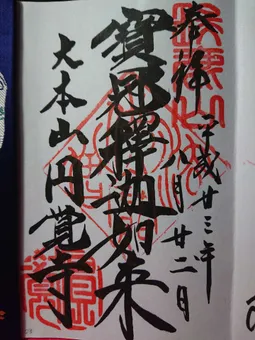 奉拝
平成廿三年
八月廿二日
寶冠釋迦如来
大本山円覚寺